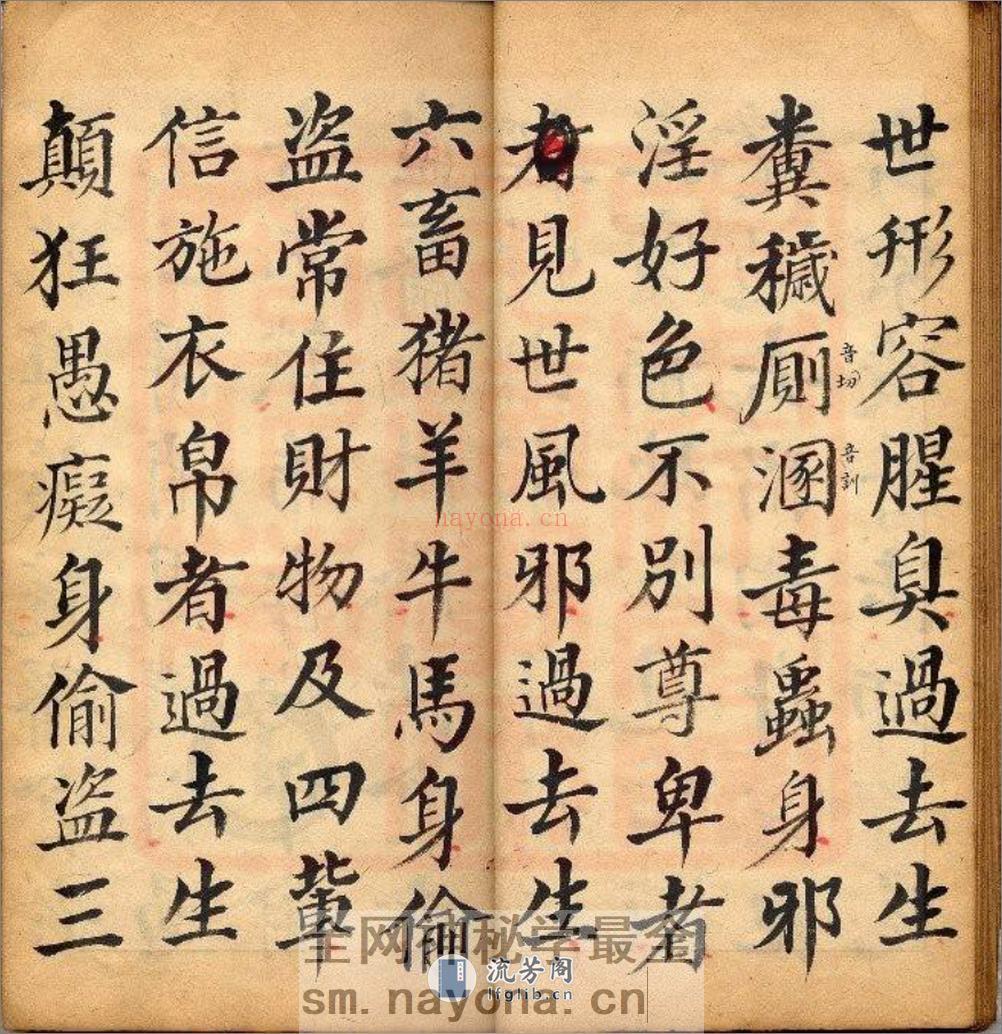 世形容腥臭過去生
糞穢厠溷毒蟲身邪
音切
音訓
淫好色不別尊卑者
見世風邪過去生
六畜猪羊牛馬身偷
盗常住財物及四輩
信施衣帛者過去生
顛狂愚癡身偷盗三
nayona.cn
全网神秘学最全
sm.nayona.cn
流芳阁
lfglib.cn